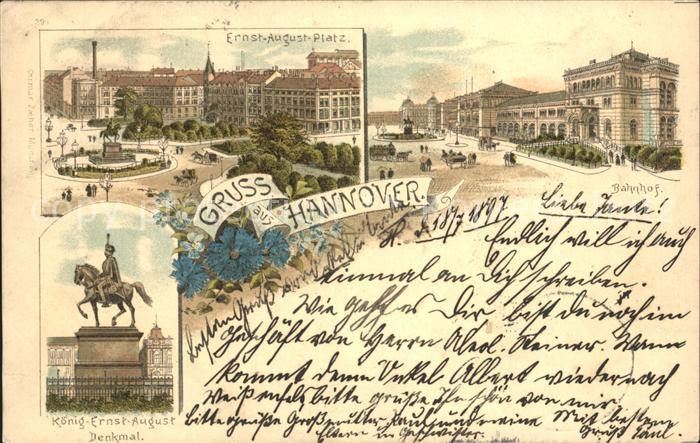 Ernst-August-Platz.
Bahnhof.
GRUSS
aus
HANNOVER.
König-Ernst-August
Denkmal.
H. d. 18/7 1897
Liebe Tante!
Endlich will ich auch
einmal an Dich schreiben.
Wie geht es Dir, bist du noch im
Geschäft von Herrn Adol. Reiner. Wann
kommt denn Onkel Albert wieder nach
Weißenfels bitte grüße ihn schön von mir
bitte grüße Großmutter
Mit besten
Eltern u. Geschwister.
Gruß Paul.